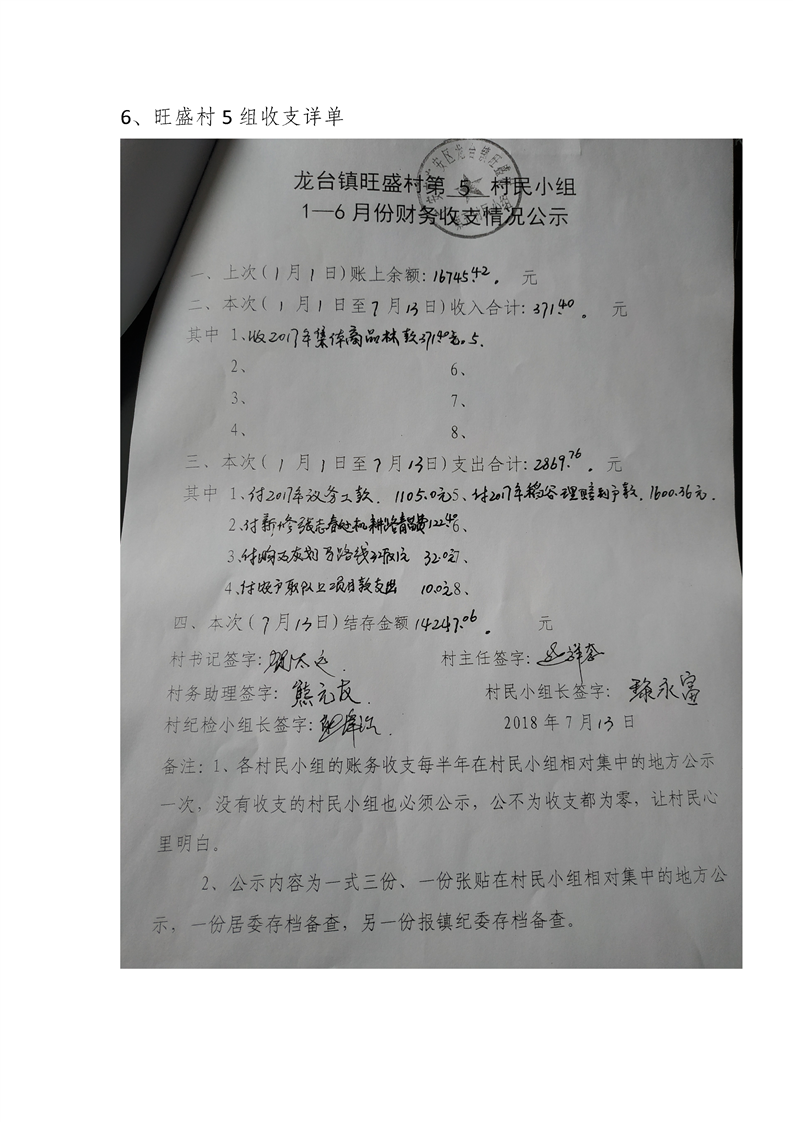 6、旺盛村 5 组收支详单
龙台镇旺盛村第 5 村民小组
1—6 月份财务收支情况公示
一、上次(1月1日)账上余额:16745.42。 元
二、本次(1月1日至7月13日)收入合计:371.40。 元
其中 1、收2017年集体商品林款371.40元。5、
2、 6、
3、 7、
4、 8、
三、本次(1月1日至7月13日)支出合计:2869.76。元
其中 1、付2017年议务工款. 1105.0元5、付2017年稻谷理赔到户款.1600.36元.
2、付新修张志春处机耕路青苗费122.40 6、
3、付购石灰划马路线 32.0元7、
4、付 项目款支出 10.0元8、
四、本次(7月13日)结存金额14247.06。 元
村书记签字: 村主任签字:
村务助理签字:熊元友. 村民小组长签字: 永富
村纪检小组长签字: 2018 年 7 月 13 日
备注:1、各村民小组的账务收支每半年在村民小组相对集中的地方公示
一次,没有收支的村民小组也必须公示,公不为收支都为零,让村民心
里明白。
2、公示内容为一式三份、一份张贴在村民小组相对集中的地方公
示,一份居委存档备查,另一份报镇纪委存档备查。